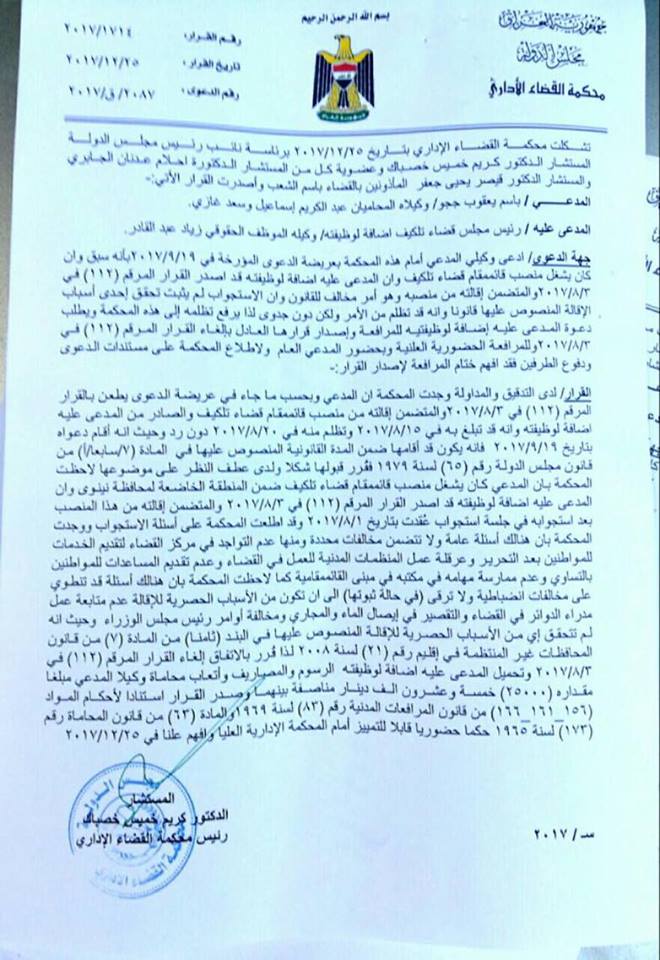 بسم الله الرحمن الرحيم
جمهورية العراق
مجلس الدولة
محكمة القضاء الأداري
رقم القرار: ٢٠١٧/١٧١٤
تاريخ القرار: ٢٠١٧/١٢/٢٥
رقم الدعوى: ٢٠٨٧/ق/٢٠١٧
تشكلت محكمة القضاء الإداري بتاريخ ٢٠١٧/١٢/٢٥ برئاسة نائب رئيس مجلس الدولة
المستشار الدكتور كريم خميس خصباك وعضوية كل من المستشار الدكتورة احلام عدنان الجابري
والمستشار الدكتور قيصر يحيى جعفر المأذونين بالقضاء باسم الشعب وأصدرت القرار الأتي:-
المدعــــي / باسم يعقوب ججو/ وكيلاه المحاميان عبد الكريم إسماعيل وسعد غازي.
المدعى عليه / رئيس مجلس قضاء تلكيف اضافة لوظيفته/ وكيله الموظف الحقوقي زياد عبد القادر.
جهة الدعوى/ ادعى وكيلي المدعي أمام هذه المحكمة بعريضة الدعوى المؤرخة في ٢٠١٧/٩/١٩بأنه سبق وان
كان يشغل منصب قائممقام قضاء تلكيف وان المدعى عليه اضافة لوظيفته قد اصدر القرار المرقم (١١٢) في
٢٠١٧/٨/٣والمتضمن إقالته من منصبه وهو أمر مخالف للقانون وان الاستجواب لم يثبت تحقق إحدى أسباب
الإقالة المنصوص عليها قانونا وانه قد تظلم من الأمر ولكن دون جدوى لذا يرفع تظلمه إلى هذه المحكمة ويطلب
دعوة المدعى عليه إضافة لوظيفتيه للمرافعة وإصدار قرارها العادل بإلغاء القرار المرقم (١١٢) في
٢٠١٧/٨/٣وللمرافعة الحضورية العلنية وبحضور المدعي العام ولاطلاع المحكمة على مستندات الدعوى
ودفوع الطرفين فقد افهم ختام المرافعة لإصدار القرار:-
القرار/ لدى التدقيق والمداولة وجدت المحكمة ان المدعي وبحسب ما جاء في عريضة الدعوى يطعن بالقرار
المرقم (١١٢) في ٢٠١٧/٨/٣والمتضمن إقالته من منصب قائممقام قضاء تلكيف والصادر من المدعى عليه
اضافة لوظيفته وانه قد تبلغ به في ٢٠١٧/٨/١٥ وتظلم منه في ٢٠١٧/٨/٢٠ دون رد وحيث انه أقام دعواه
بتاريخ ٢٠١٧/٩/١٩ فانه يكون قد أقامها ضمن المدة القانونية المنصوص عليها في المادة (٧/سابعا/أ) من
قانون مجلس الدولة رقم (٦٥) لسنة ١٩٧٩ فقرر قبولها شكلا ولدى عطف النظر على موضوعها لاحظت
المحكمة بان المدعي كان يشغل منصب قائممقام قضاء تلكيف ضمن المنطقة الخاضعة لمحافظة نينوى وان
المدعى عليه اضافة لوظيفته قد اصدر القرار المرقم (١١٢) في ٢٠١٧/٨/٣ والمتضمن إقالته من هذا المنصب
بعد استجوابه في جلسة استجواب عُقدت بتاريخ ٢٠١٧/٨/١ وقد اطلعت المحكمة على أسئلة الاستجواب ووجدت
المحكمة بان هنالك أسئلة عامة ولا تتضمن مخالفات محددة ومنها عدم التواجد في مركز القضاء لتقديم الخدمات
للمواطنين بعد التحرير وعرقلة عمل المنظمات المدنية للعمل في القضاء وعدم تقديم المساعدات للمواطنين
بالتساوي وعدم ممارسة مهامه في مكتبه في مبنى القائممقامية كما لاحظت المحكمة بان هنالك أسئلة قد تنطوي
على مخالفات انضباطية ولا ترقى (في حالة ثبوتها) الى ان تكون من الأسباب الحصرية للإقالة عدم متابعة عمل
مدراء الدوائر في القضاء والتقصير في إيصال الماء والمجاري ومخالفة أوامر رئيس مجلس الوزراء وحيث انه
لم تتحقق إي من الأسباب الحصرية للإقالة المنصوص عليها في البند (ثامنا) من المادة (٧) من قانون
المحافظات غير المنتظمة في إقليم رقم (٢١) لسنة ٢٠٠٨ لذا قُرر بالاتفاق إلغاء القرار المرقم (١١٢) في
٢٠١٧/٨/٣ وتحميل المدعى عليه اضافة لوظيفته الرسوم والمصاريف وأتعاب محاماة وكيلا المدعي مبلغا
مقداره (٢٥٠٠٠) خمسة وعشرون الف دينار مناصفة بينهما وصدر القرار استنادا لأحكام المواد
(١٥٦_١٦١_١٦٦) من قانون المرافعات المدنية رقم (٨٣) لسنة ١٩٦٩والمادة (٦٣) من قانون المحاماة رقم
(١٧٣) لسنة ١٩٦٥ حكما حضوريا قابلا للتمييز أمام المحكمة الإدارية العليا وافهم علنا في ٢٠١٧/١٢/٢٥
المستشار
الدكتور كريم خميس خصباك
رئيس محكمة القضاء الإداري
سـ / ٢٠١٧